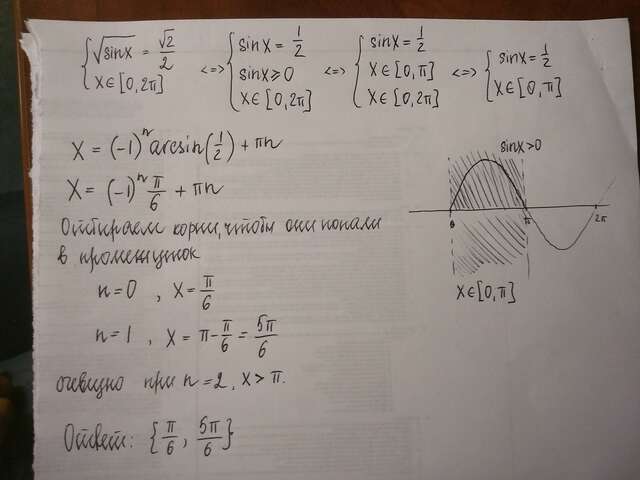 { √sinx = √2/2
x∈[0,2π]
<=> { sinx = 1/2
sinx ≥ 0
x∈[0,2π]
<=> { sinx = 1/2
x∈[0,π]
x∈[0,2π]
<=> { sinx = 1/2
x∈[0,π]
x = (-1)^n arcsin(1/2) + πn
x = (-1)^n π/6 + πn
Отбираем корни, чтобы они попали
в промежуток
n=0 , x = π/6
n=1 , x = π - π/6 = 5π/6
очевидно при n=2, x > π.
Ответ: {π/6 , 5π/6}
sinx>0
0 π 2π
x∈[0,π]